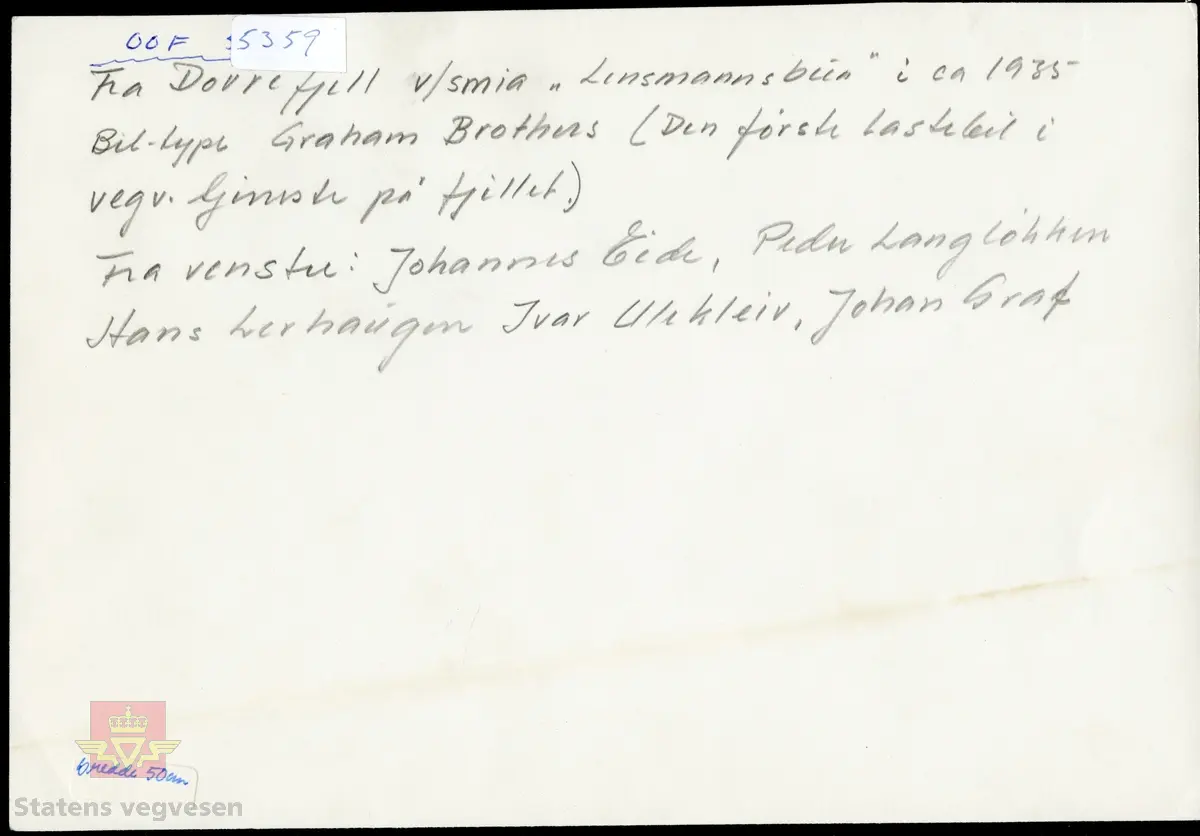 OOF 5359
Fra Dovrefjell v/smia „Lensmannsbua" i ca 1935
Bil-type Graham Brothers (Den første lastebil i
vegv. tjeneste på fjellet.)
Fra venstre: Johannes Eide, Peder Langløkken
Hans Lerhaugen Ivar Ulekleiv, Johan Graf
bredde 50cm
Statens vegvesen